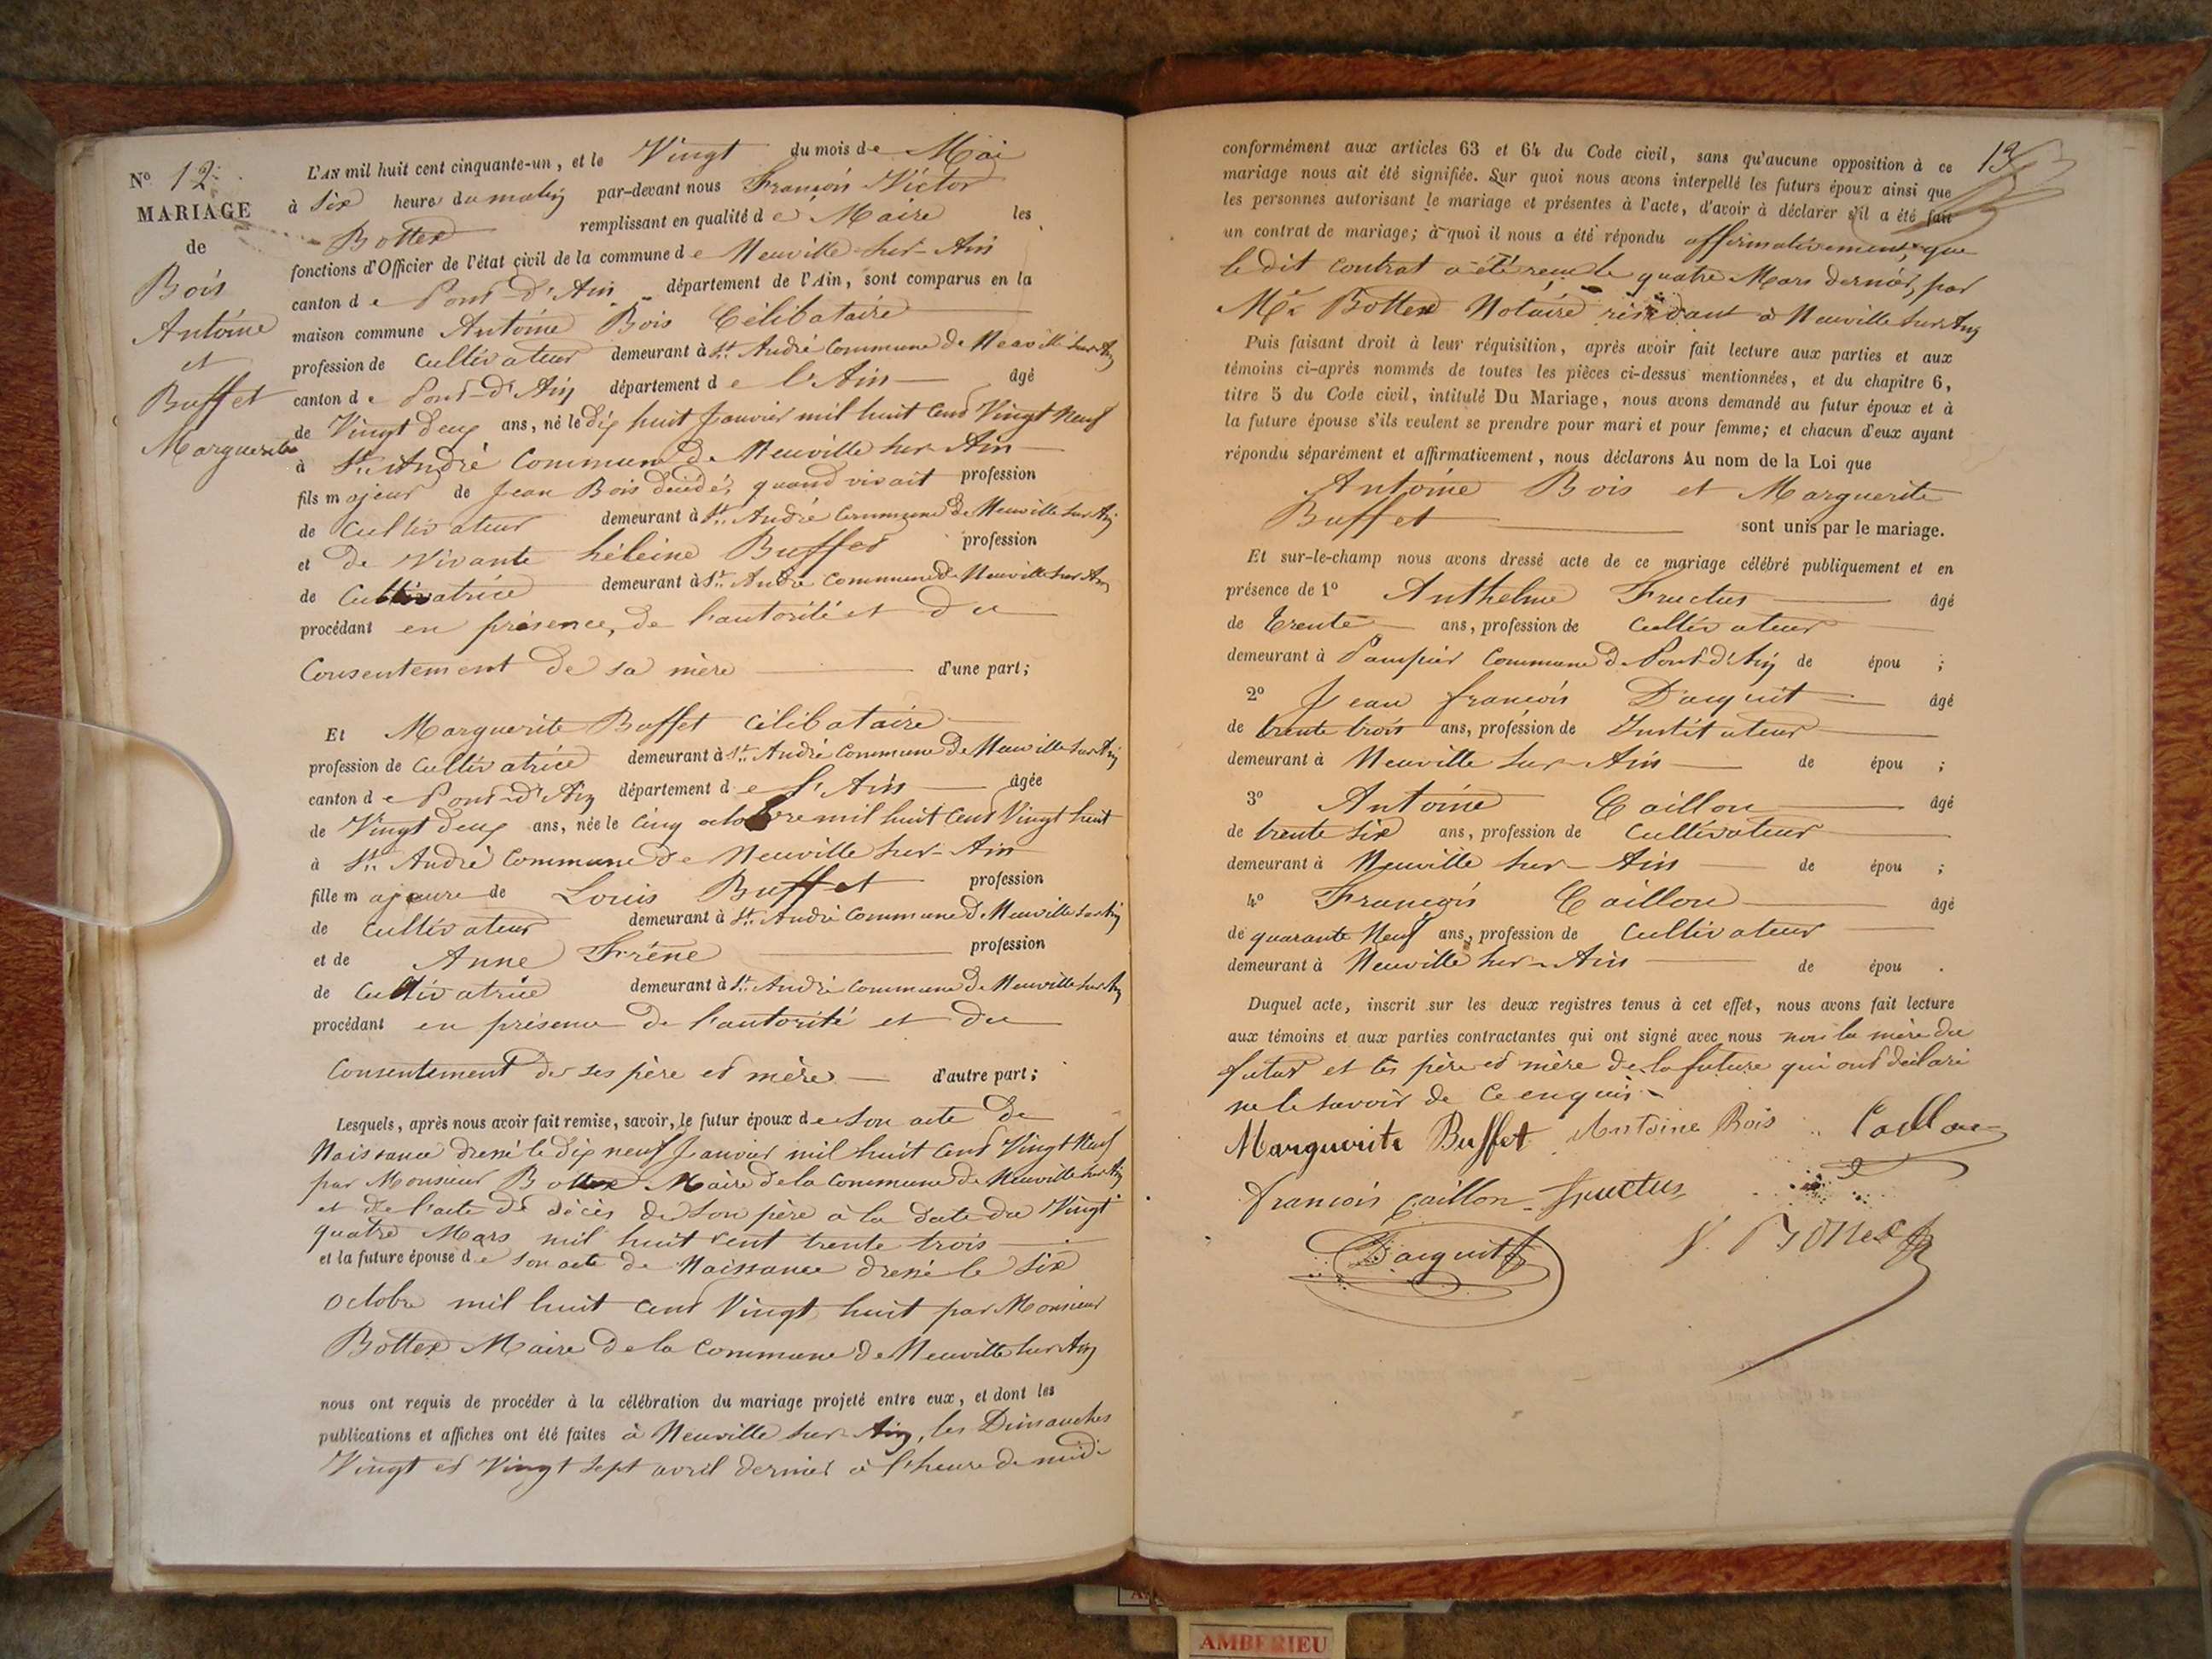 N° 12.
MARIAGE
de
Bois
Antoine
et
Buffet
Marguerite
L'AN mil huit cent cinquante-un, et le Vingt du mois de Mai
à Six heure du matin par-devant nous François Victor
Bottex remplissant en qualité de Maire les
fonctions d'Officier de l'état civil de la commune de Neuville sur-Ain
canton de Pont-D'Ain département de l'Ain, sont comparus en la
maison commune Antoine Bois Célibataire
profession de Cultivateur demeurant à St. André Commune de Neuville sur Ain
canton de Pont-D'Ain département de l'Ain âgé
de Vingt deux ans, né le dix huit Janvier mil huit cent Vingt Neuf
à St. André Commune de Neuville sur Ain
fils majeur de Jean Bois décédé, quand vivait profession
de Cultivateur demeurant à St. André Commune de Neuville sur Ain
et de Vivante héleine Buffet profession
de Cultivatrice demeurant à St. André Commune de Neuville sur Ain
procédant en présence, de l'autorité et du
Consentement de sa mère d'une part;
Et Marguerite Buffet Célibataire
profession de Cultivatrice demeurant à St. André Commune de Neuville sur Ain
canton de Pont-d'Ain département de l'Ain âgée
de Vingt deux ans, née le Cinq octobre mil huit Cent Vingt huit
à St. André Commune de Neuville sur-Ain
fille majeure de Louis Buffet profession
de Cultivateur demeurant à St. André Commune de Neuville sur Ain
et de Anne Frène profession
de Cultivatrice demeurant à St. André Commune de Neuville sur Ain
procédant en présence de l'autorité et du
Consentement de ses père et mère d'autre part;
Lesquels, après nous avoir fait remise, savoir, le futur époux de son acte de
Naissance dressé le dix neuf Janvier mil huit cent Vingt Neuf
par Monsieur Bottex Maire de la Commune de Neuville sur Ain
et de l'acte de décès de son père à la date du Vingt
quatre Mars mil huit cent trente trois
et la future épouse de son acte de Naissance dressé le Six
Octobre mil huit cent Vingt huit par Monsieur
Bottex Maire de la Commune de Neuville sur Ain
nous ont requis de procéder à la célébration du mariage projeté entre eux, et dont les
publications et affiches ont été faites à Neuville sur Ain, les Dimanches
Vingt et Vingt Sept avril dernier à l'heure de midi
13
conformément aux articles 63 et 64 du Code civil, sans qu'aucune opposition à ce
mariage nous ait été signifiée. Sur quoi nous avons interpellé les futurs époux ainsi que
les personnes autorisant le mariage et présentes à l'acte, d'avoir à déclarer s'il a été fait
un contrat de mariage; à quoi il nous a été répondu affirmativement, que
le dit contrat a été reçu le quatre Mars dernier, par
Me. Bottex Notaire résidant à Neuville sur Ain
Puis faisant droit à leur réquisition, après avoir fait lecture aux parties et aux
témoins ci-après nommés de toutes les pièces ci-dessus mentionnées, et du chapitre 6,
titre 5 du Code civil, intitulé Du Mariage, nous avons demandé au futur époux et à
la future épouse s'ils veulent se prendre pour mari et pour femme; et chacun d'eux ayant
répondu séparément et affirmativement, nous déclarons Au nom de la Loi que
Antoine Bois et Marguerite
Buffet sont unis par le mariage.
Et sur-le-champ nous avons dressé acte de ce mariage célébré publiquement et en
présence de 1° Anthelme Fructus âgé
de trente ans, profession de Cultivateur
demeurant à Pampier Commune de Pont-d'Ain de épou ;
2° Jean françois Dacquit âgé
de trente trois ans, profession de Instituteur
demeurant à Neuville sur-Ain de épou ;
3° Antoine Caillon âgé
de trente Six ans, profession de Cultivateur
demeurant à Neuville sur-Ain de épou ;
4° François Caillon âgé
de quarante Neuf ans, profession de Cultivateur
demeurant à Neuville sur-Ain de épou .
Duquel acte, inscrit sur les deux registres tenus à cet effet, nous avons fait lecture
aux témoins et aux parties contractantes qui ont signé avec nous non la mère du
futur et les père et mère de la future qui ont déclaré
ne le savoir de ce enquis
Marguerite Buffet Antoine Bois Caillon
françois Caillon fructus
Dacquit V. Bottex
AMBERIEU